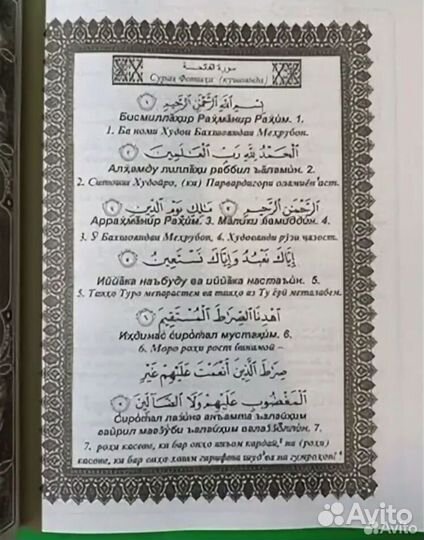 سورة الفاتحة
Сураи Фотиҳа (кушоянда)
بِسْمِ اللَّهِ الرَّحْمَٰنِ الرَّحِيمِ ١
Бисмиллаҳир Раҳмaнир Раҳим. 1.
1. Ба номи Худои Бахшояндаи Меҳрубон.
الْحَمْدُ لِلَّهِ رَبِّ الْعَالَمِينَ ٢
Алҳамду лиллаҳи раббил ъаламин. 2.
2. Ситоиш Худойро, (ки) Парвардигори оламиён аст.
الرَّحْمَٰنِ الرَّحِيمِ ٣ مَالِكِ يَوْمِ الدِّينِ ٤
Арраҳманир Раҳим. 3. Малики йавмиддин. 4.
3. Ӯ Бахшояндаи Меҳрубон, 4. Худованди рӯзи ҷазост.
إِيَّاكَ نَعْبُدُ وَإِيَّاكَ نَسْتَعِينُ ٥
Иййака наъбуду ва иййака настаъин. 5.
5. Танҳо Туро мепарастем ва танҳо аз Ту ёрӣ металабем.
اهْدِنَا الصِّرَاطَ الْمُسْتَقِيمَ ٦
Иҳдинас сиротал мустақим. 6.
6. Моро роҳи рост бинамой –
صِرَاطَ الَّذِينَ أَنْعَمْتَ عَلَيْهِمْ غَيْرِ
الْمَغْضُوبِ عَلَيْهِمْ وَلَا الضَّالِّينَ ٧
Сиротал лазина анъамта ъалайҳим
ғайрил мағзуби ъалайҳим валаззоллин. 7.
7. роҳи касоне, ки бар онҳо инъом кардаӣ, на (роҳи)
касоне, ки бар онҳо хашм гирифта шуд ва на гумроҳон!
Avito
Avito